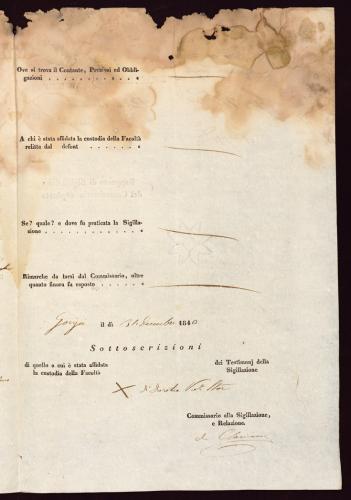 Ove si trova il Contante, Preziosi ed Obbli-
gazioni . . . . . . . . . . .
A chi è stata affidata la custodia della Facoltà
relitta dal defont . . . . . . .
Se? quale? e dove fu praticata la Sigilla-
zione . . . . . . . . . . . .
Rimarche da farsi dal Commissario, oltre
quanto finora fu esposto . . . . . .
il dì 31 Decembre 1840
Sottoscrizioni
di quello a cui è stata affidata
la custodia della Facoltà
dei Testimonj della
Sigillazione
X
Commissario alla Sigillazione,
e Relazione.